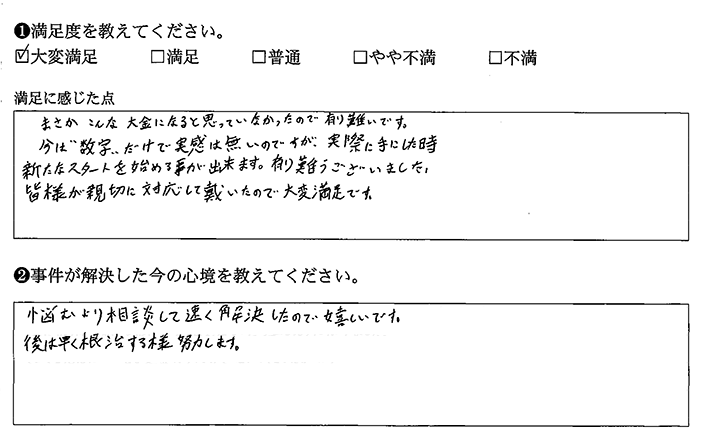 ❶満足度を教えてください。
☑大変満足 □満足 □普通 □やや不満 □不満
満足に感じた点
まさか こんな 大金になると思っていなかったので 有り難いです。
今は"数字"だけで実感は無いのですが、実際に手にした時
新たなスタートを始める事が出来ます。有り難うございました。
皆様が親切に対応して戴いたので大変満足です。
❷事件が解決した今の心境を教えてください。
悩むより相談して速く解決したので嬉しいです。
後は早く根治する様努力します。